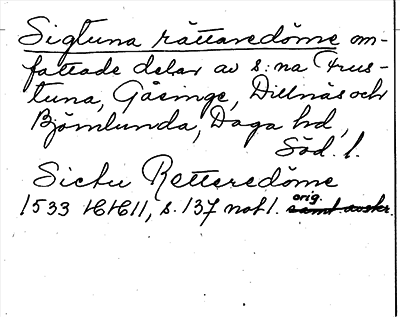 Sigtuna rättaredöme om-
fattade delar av s:na Frus-
tuna, Gåsinge, Dillnäs och
Björnlunda, Daga hd,
Söd. l.
Sictu Retteredöme
1533 HH11, s. 137 not 1. orig.
samt avskr.